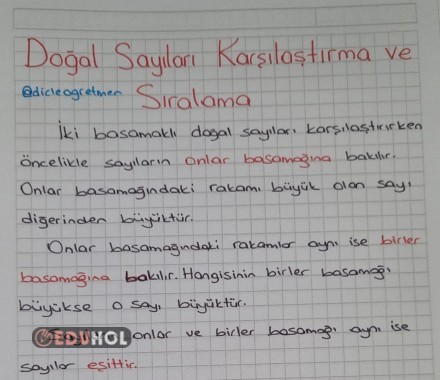 Doğal Sayıları Karşılaştırma ve
@dicleogretmen Sıralama
İki basamaklı doğal sayıları karşılaştırırken
öncelikle sayıların onlar basamağına bakılır.
Onlar basamağındaki rakamı büyük olan sayı
diğerinden büyüktür.
Onlar basamağındaki rakamlar aynı ise birler
basamağına bakılır. Hangisinin birler basamağı
büyükse o sayı büyüktür.
EDUHOL onlar ve birler basamağı aynı ise
sayılar eşittir.